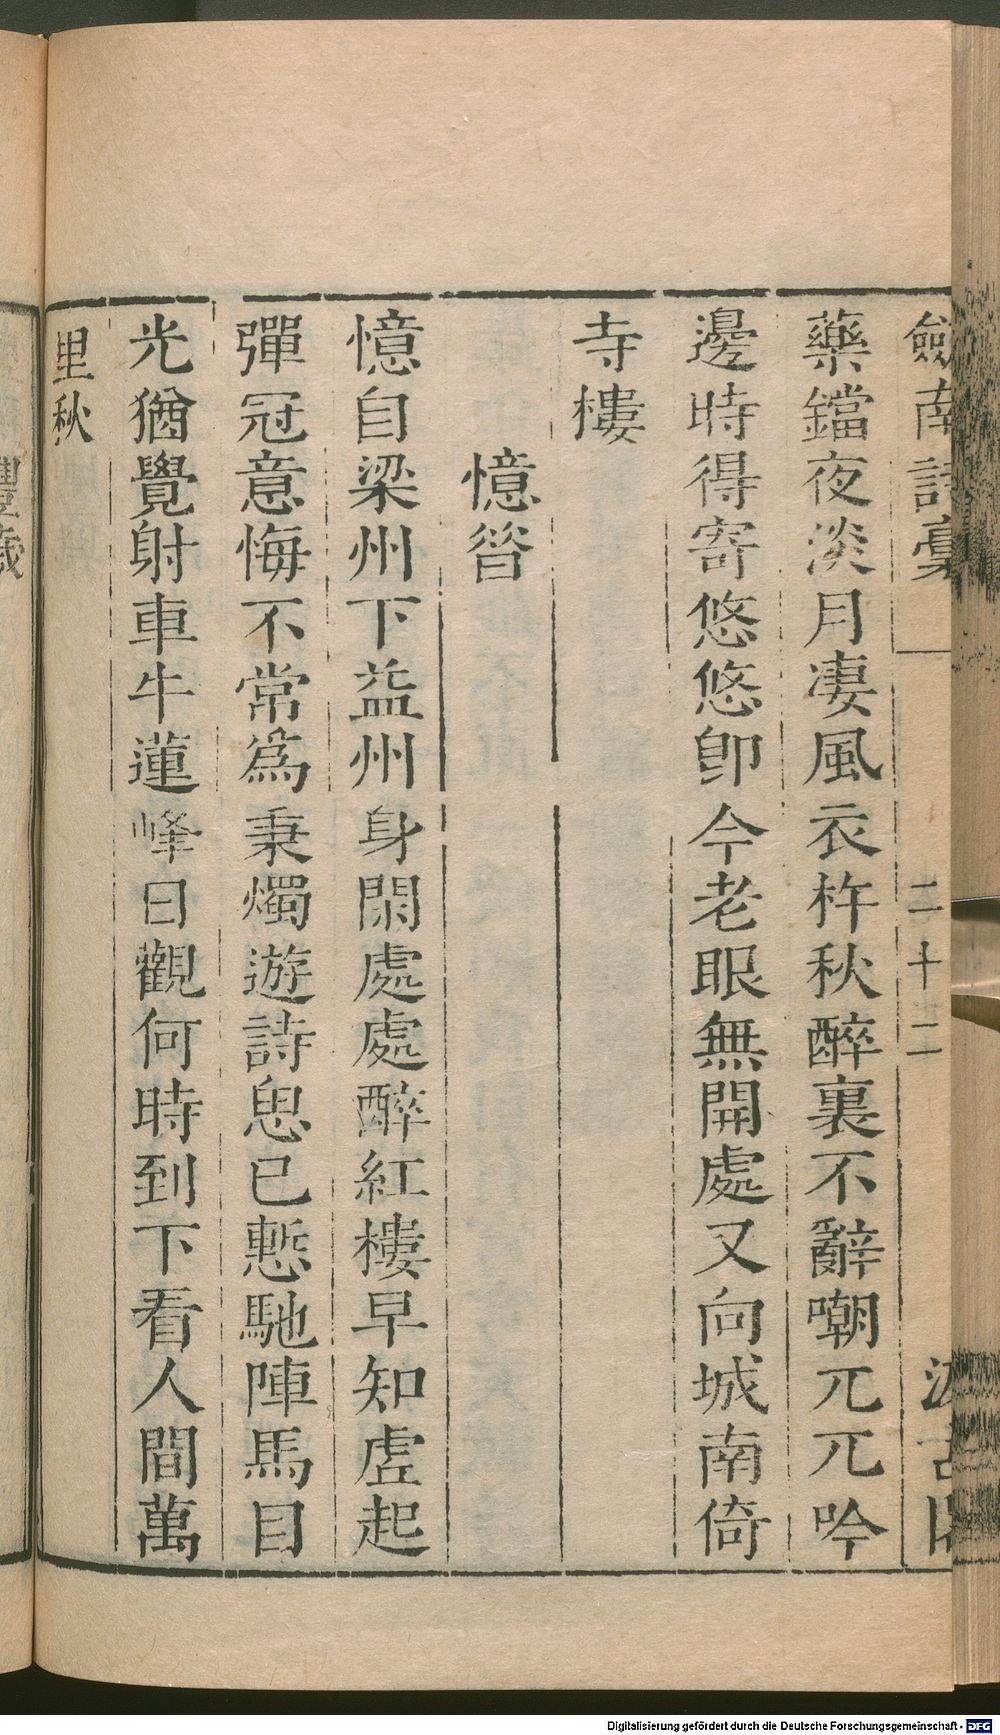 劍南詩稾
二十二
藥鐺夜淡月凄風衣杵秋醉裏不辭嘲兀兀吟
邊時得寄悠悠卽今老眼無開處又向城南倚
寺樓
憶昔
憶自梁州下益州身閑處處醉紅樓早知虗起
彈冠意悔不常爲秉燭遊詩思已慙馳陣馬目
光猶覺射車牛蓮峰日觀何時到下看人間萬
里秋
豐歲
Digitalisierung gefördert durch die Deutsche Forschungsgemeinschaft - DFG